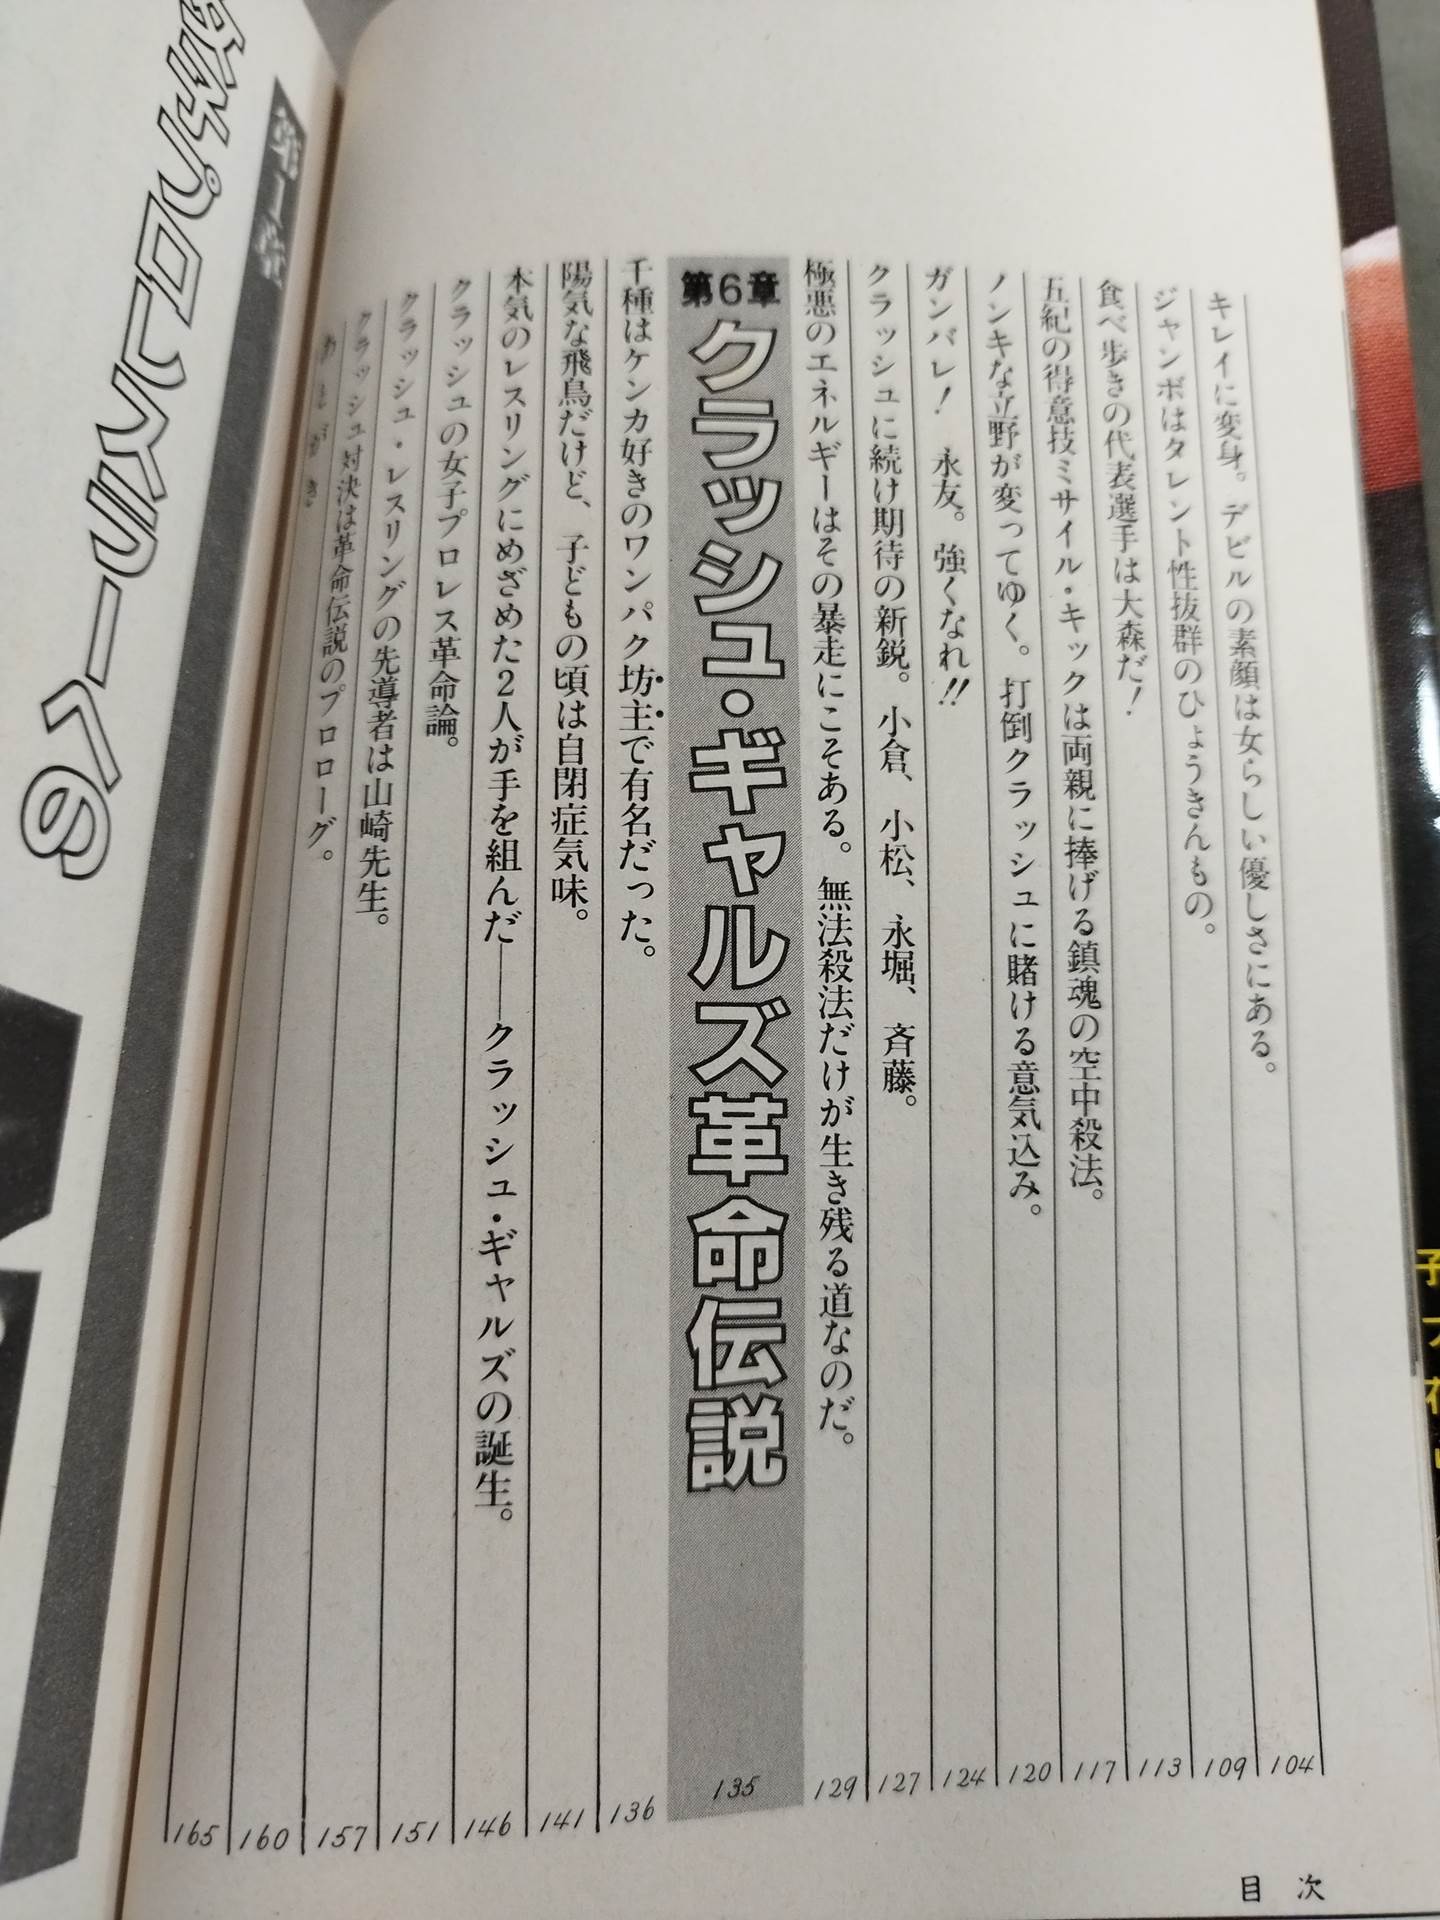 キレイに変身。デビルの素顔は女らしい優しさにある。
104
ジャンボはタレント性抜群のひょうきんもの。
109
食べ歩きの代表選手は大森だ!
113
五紀の得意技ミサイル・キックは両親に捧げる鎮魂の空中殺法。
117
ノンキな立野が変ってゆく。打倒クラッシュに賭ける意気込み。
120
ガンバレ! 永友。強くなれ!!
124
クラッシュに続け期待の新鋭。小倉、小松、永堀、斉藤。
127
極悪のエネルギーはその暴走にこそある。無法殺法だけが生き残る道なのだ。
129
第6章 クラッシュ・ギャルズ革命伝説
135
千種はケンカ好きのワンパク坊主で有名だった。
136
陽気な飛鳥だけど、子どもの頃は自閉症気味。
141
本気のレスリングにめざめた2人が手を組んだ――クラッシュ・ギャルズの誕生。
146
クラッシュの女子プロレス革命論。
151
クラッシュ・レスリングの先導者は山崎先生。
157
クラッシュ対決は革命伝説のプロローグ。
160
あとがき
165
目次
第1章
女子プロレスラーへの